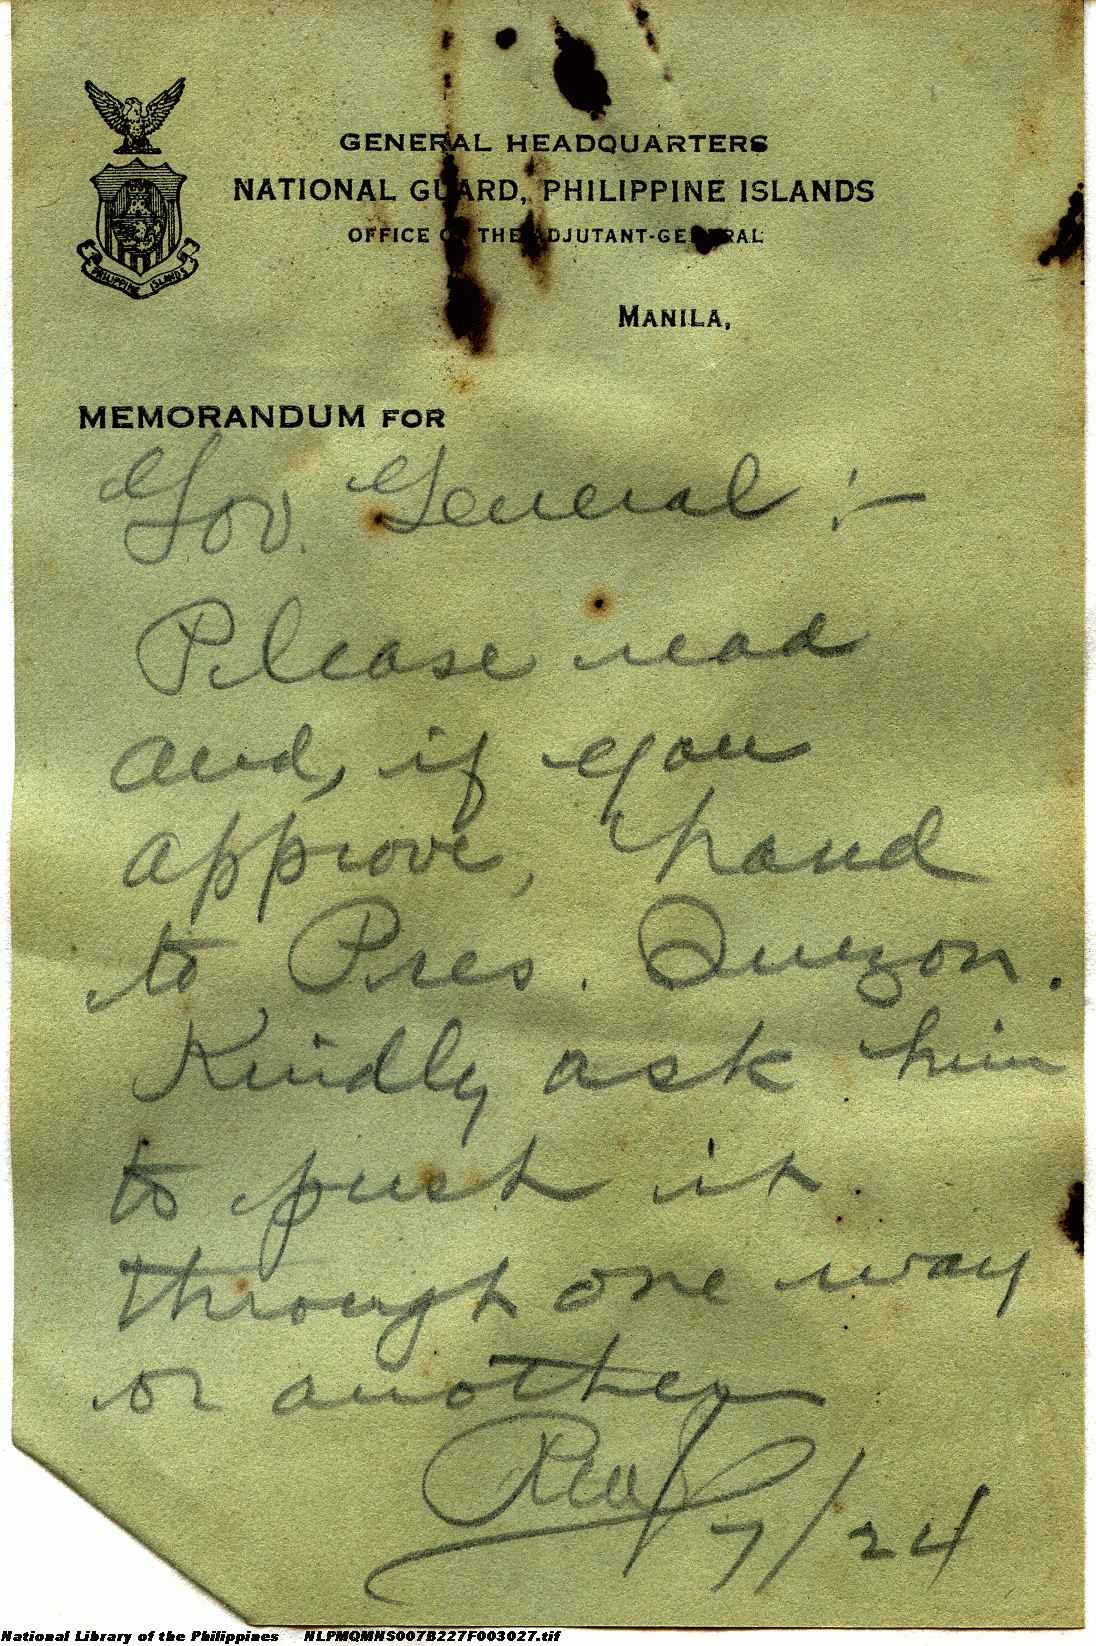 GENERAL HEADQUARTERS
NATIONAL GUARD, PHILIPPINE ISLANDS
OFFICE OF THE ADJUTANT-GENERAL
PHILIPPINE ISLANDS
MANILA,
MEMORANDUM FOR
Gov. General :-
Please read
and, if you
approve, hand
to Pres. Quezon.
Kindly ask him
to push it
through one way
or another
7/24
National Library of the Philippines NLPMQMNS007B227F003027.tif